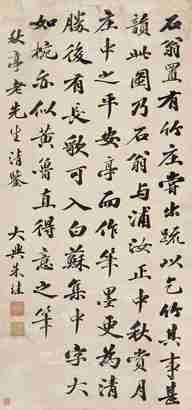 石翁置有竹庄嘗出疏以乞竹其事甚
韻此圖乃石翁与浦汝正中秋賞月
庄中之平安亭而作筆墨更為清
勝後有長歌可入白蘇集中字大
如椀亦似黃魯直得意之筆
老先生清鑒
大興朱